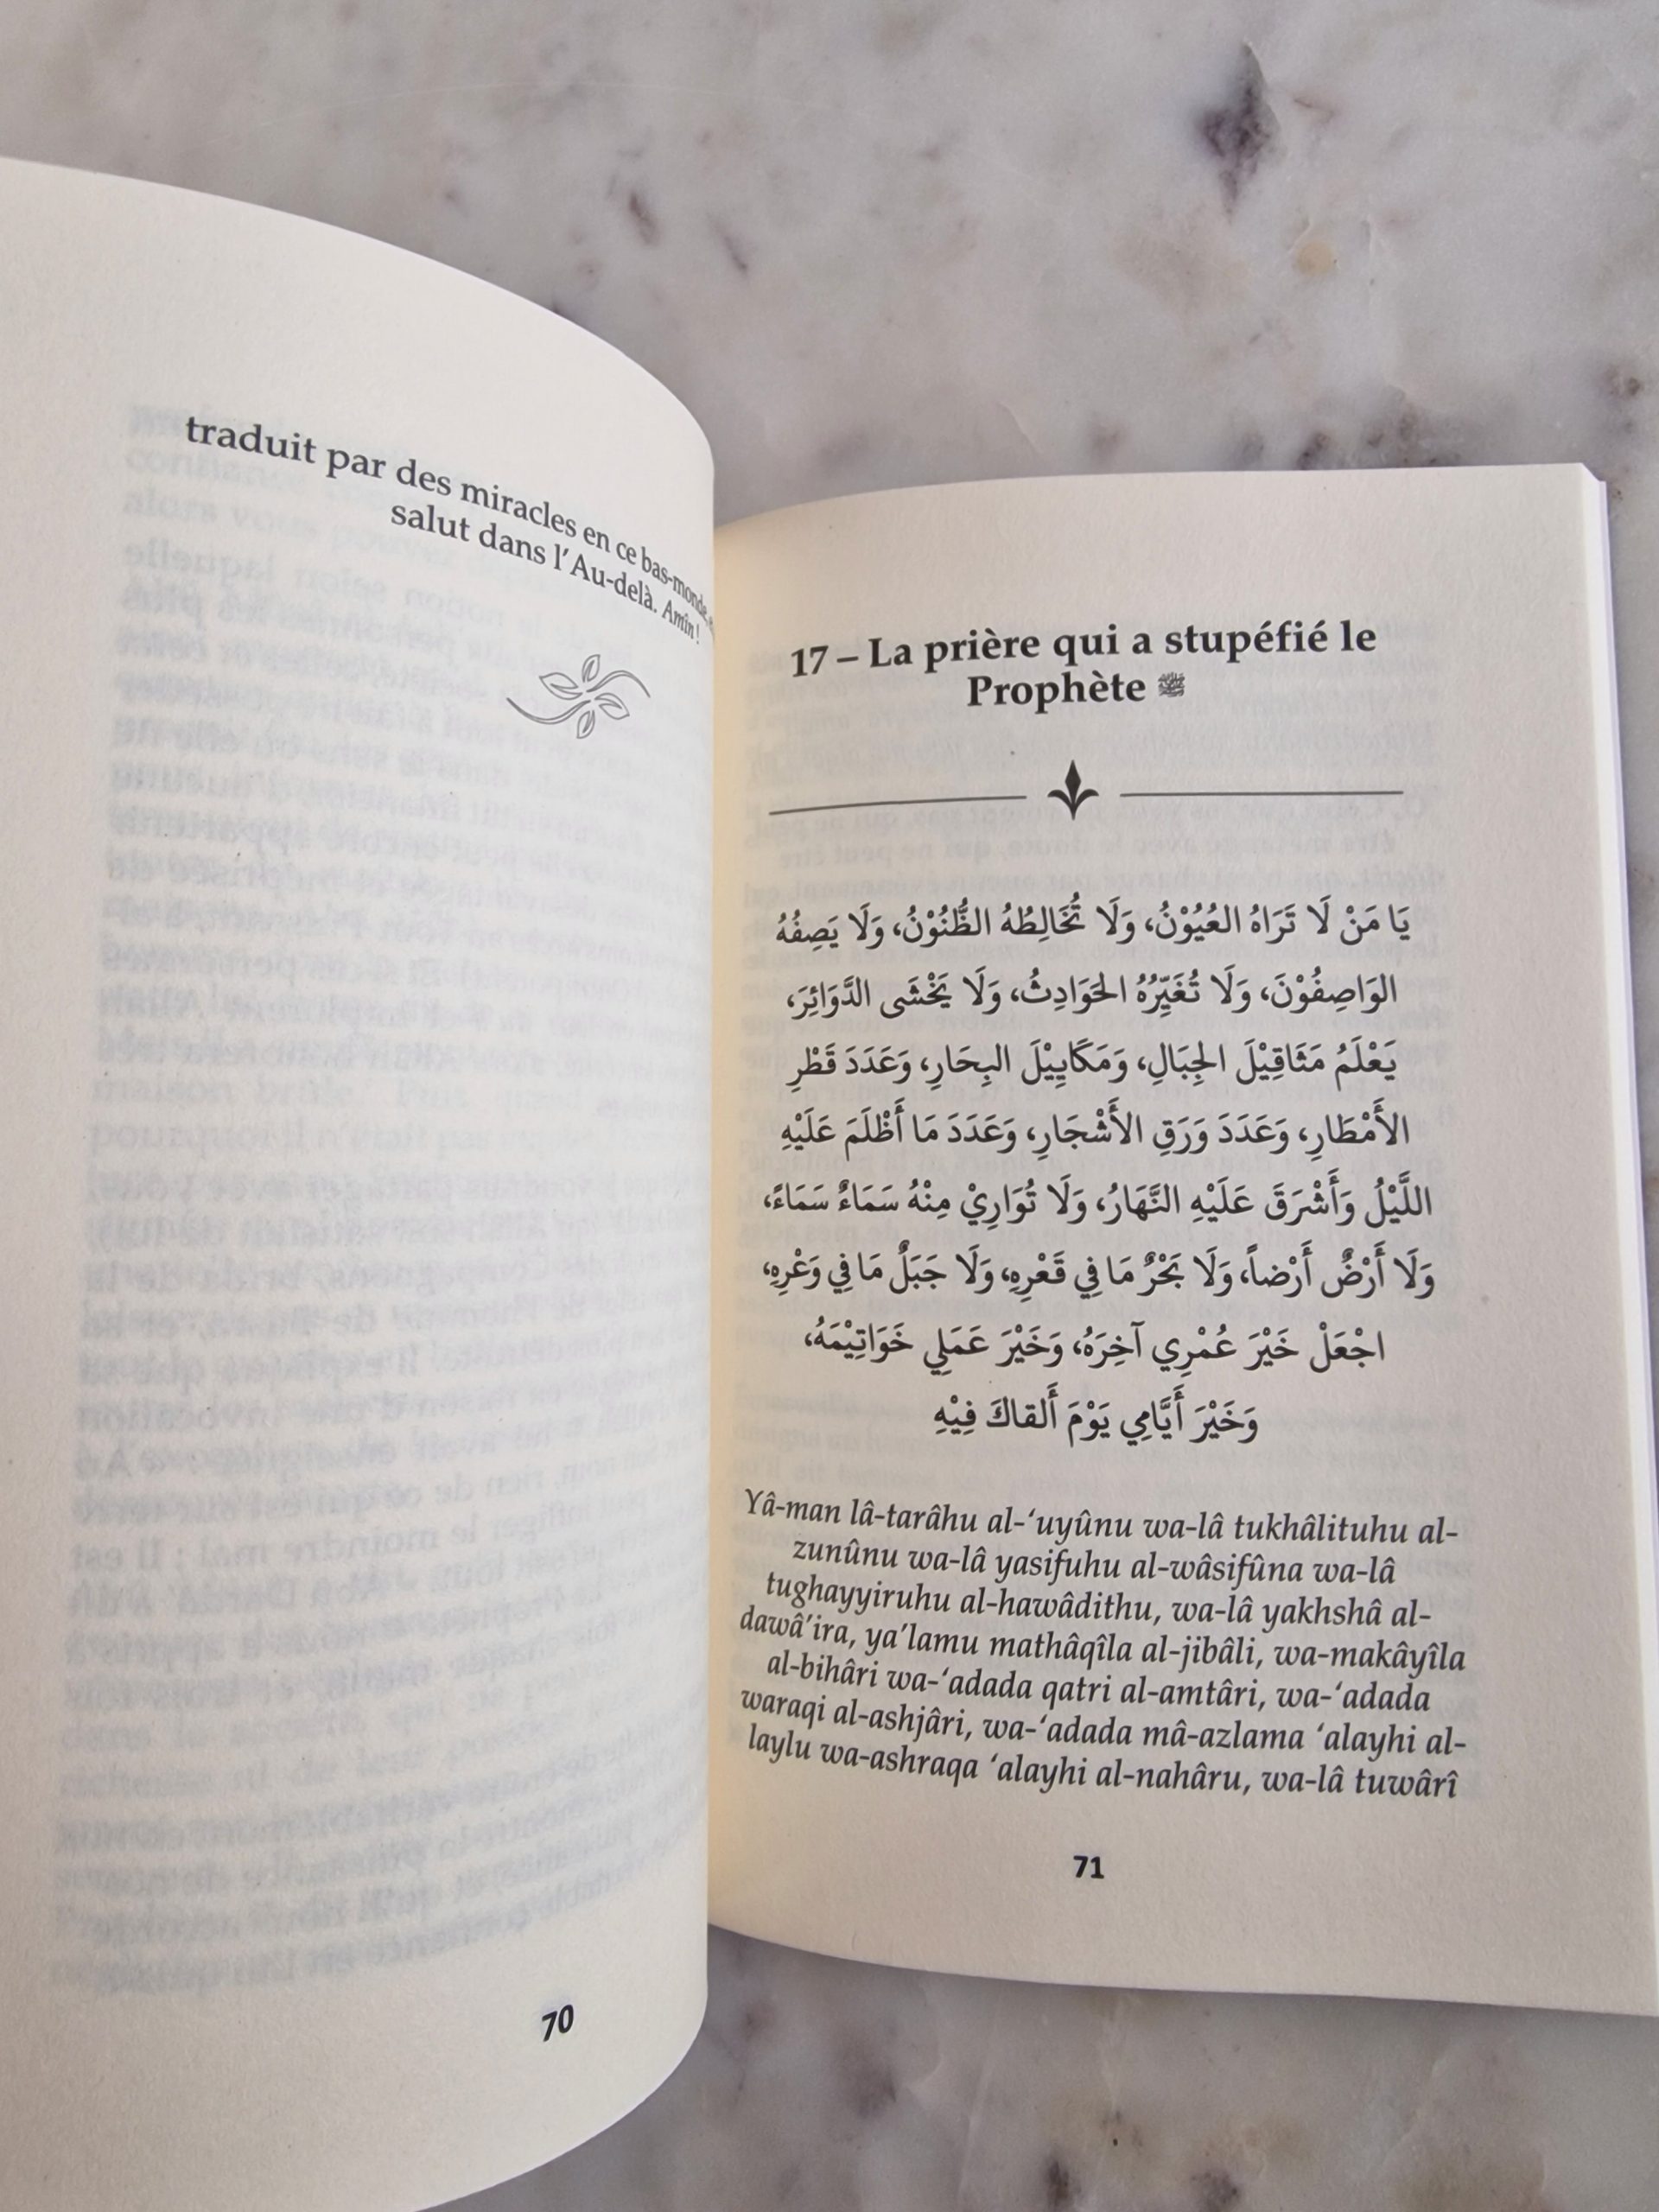 traduit par des miracles en ce bas-monde,
salut dans l'Au-delà. Amîn !
70
17 – La prière qui a stupéfié le
Prophète ﷺ
يَا مَنْ لَا تَرَاهُ العُيُوْنُ، وَلَا تُخَالِطُهُ الظُّنُوْنُ، وَلَا يَصِفُهُ
الوَاصِفُوْنَ، وَلَا تُغَيِّرُهُ الحَوَادِثُ، وَلَا يَخْشَى الدَّوَائِرَ،
يَعْلَمُ مَثَاقِيْلَ الجِبَالِ، وَمَكَايِيْلَ البِحَارِ، وَعَدَدَ قَطْرِ
الأَمْطَارِ، وَعَدَدَ وَرَقِ الأَشْجَارِ، وَعَدَدَ مَا أَظْلَمَ عَلَيْهِ
اللَّيْلُ وَأَشْرَقَ عَلَيْهِ النَّهَارُ، وَلَا تُوَارِيْ مِنْهُ سَمَاءٌ سَمَاءً،
وَلَا أَرْضٌ أَرْضاً، وَلَا بَحْرٌ مَا فِي قَعْرِهِ، وَلَا جَبَلٌ مَا فِي وَعْرِهِ،
اجْعَلْ خَيْرَ عُمْرِي آخِرَهُ، وَخَيْرَ عَمَلِي خَوَاتِيْمَهُ،
وَخَيْرَ أَيَّامِي يَوْمَ أَلقاكَ فِيْهِ
Yâ-man lâ-tarâhu al-‘uyûnu wa-lâ tukhâlituhu al-
zunûnu wa-lâ yasifuhu al-wâsifûna wa-lâ
tughayyiruhu al-hawâdithu, wa-lâ yakhshâ al-
dawâ’ira, ya’lamu mathâqîla al-jibâli, wa-makâyîla
al-bihâri wa-‘adada qatri al-amtâri, wa-‘adada
waraqi al-ashjâri, wa-‘adada mâ-azlama ‘alayhi al-
laylu wa-ashraqa ‘alayhi al-nahâru, wa-lâ tuwârî
71